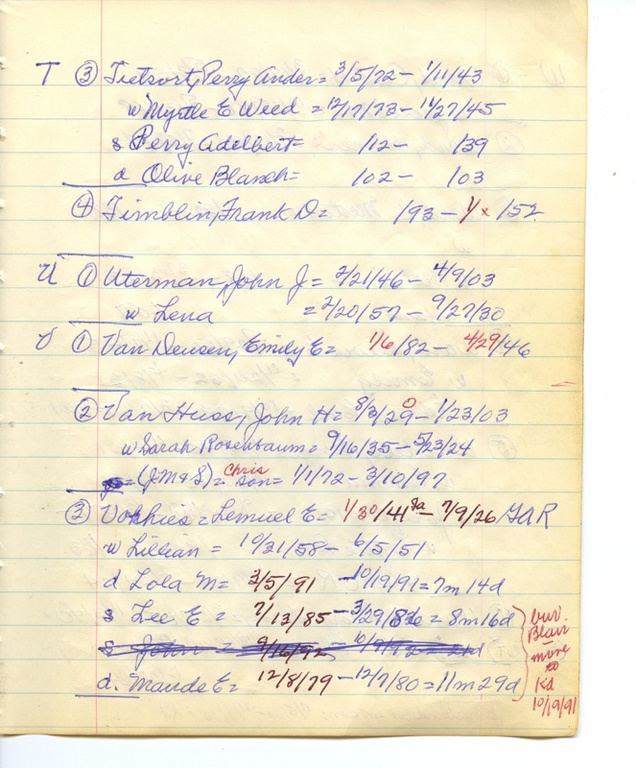 T ③ Tietsort, Perry Ander = 3/5/72 - 1/11/43
w Myrtle E Weed = 12/17/73 - 11/27/45
s Perry Adelbert = /12 - /39
d Olive Blanch = /02 - /03
④ Timblin, Frank D = /93 - 1/x /52
U ① Uterman, John J = 2/21/46 - 4/9/03
w Lena = 2/20/57 - 9/27/30
V ① Van Deusen, Emily E = 1/6/82 - 4/29/46
② Van Huss, John H = 8/3/29 - 1/23/03
w Sarah Rosenbaum = 9/16/35 - 5/23/24
= (J.M & S) = Chris son = 1/1/72 - 3/10/97
③ Vorhies = Lemuel E = 1/30/41 - 7/9/26 GAR
w Lillian = 10/21/58 - 6/5/51
d Lola M = 3/5/91 - 10/19/91 = 7m 14d
s Lee E = 7/13/85 - 3/29/86 = 8m 16d
s John = 9/16/92 -
d. Maude E = 12/8/79 - 12/7/80 = 11m 29d
bur.
Blair
move
to
Kd
10/19/91